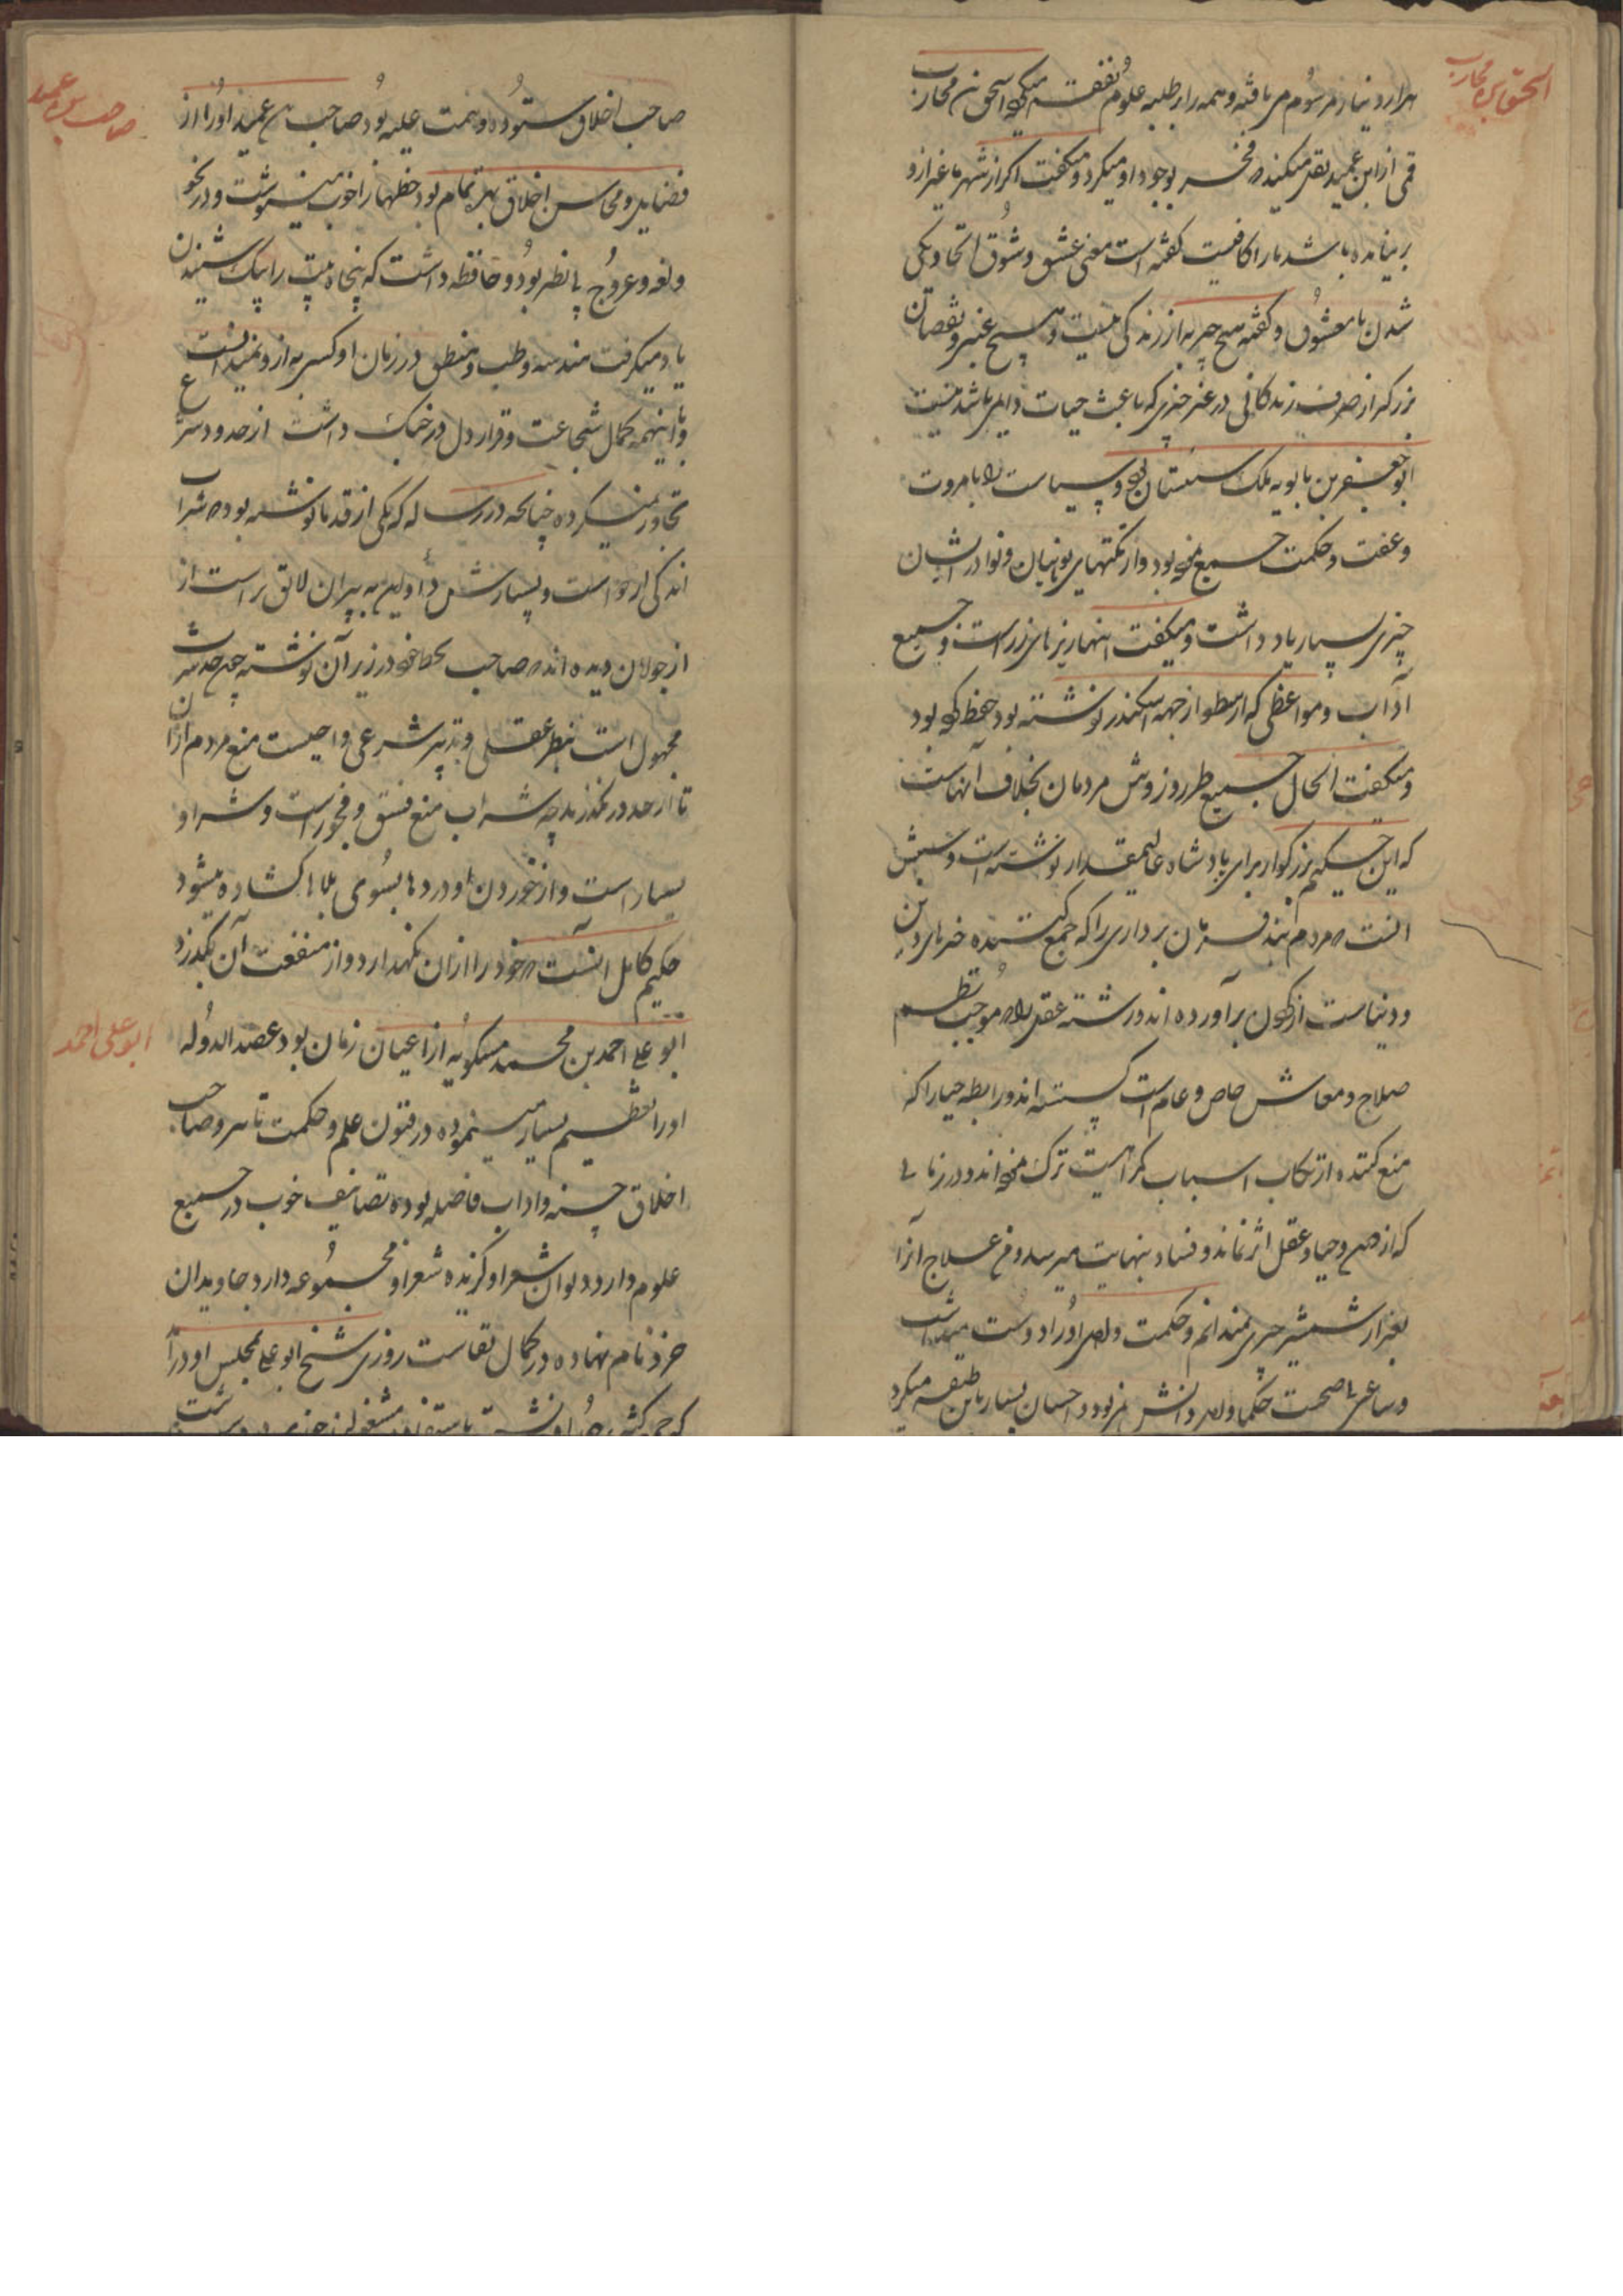 اسحق بن محارب
هزار دینار مرسوم می یافته و همه را بر طلبه علوم نفقه میکرد اسحق بن محارب
قمی از ابن عمید نقل میکند که فخر بوجود او میکرد و میگفت اگر از شهر ما غیر ازو
بر نیامده باشد ما را کافیست گفته است معنی عشق و شوق اتحاد و یکی
شدن با معشوق و گفته هیچ چیز به از زندگی نیست و هیچ غبن و نقصان
بزرگتر از صرف زندگانی در غیر چیزی که باعث حیات دایمی باشد نیست
ابو جعفر بن بابویه ملک سیستان بود و سیاست را با مروت
و عفت و حکمت جمع نموده بود و از نکتهای یونانیان و نوادر ایشان
چیزی بسیار یاد داشت و میگفت اینها ریزهای زر است و جمیع
آداب و مواعظی که ارسطو از جهه اسکندر نوشته بود حفظ کرده بود
و میگفت الحال جمیع طرز و روش مردمان بخلاف آنهاست
که این حکیم بزرگوار برای پادشاه عالیمقدار نوشته است و سببش
انست که مردم بند فرمان برداری را که جمع کننده خیرهای دین
و دنیاست از گردن برآورده اند و رشته عقل را که موجب نظم
صلاح و معاش خاص و عام است گسسته اند و رابطه حیا را که
منع کننده از ارتکاب اسباب کراهیت ترک نموده اند و در زمانی
که از شرع و حیا و عقل اثر نماند و فساد بنهایت میرسد و من علاج آنرا
بغیر از شمشیر چیزی نمیدانم و حکمت و اهل او را دوست میداشت
و ساعی با صحبت حکما و اهل دانش نمی بود و احسان بسیار باین طبقه میکرد
صاحب بن عمید
صاحب اخلاق ستوده و همت علیه بود صاحب بن عمید او را از
فضایل و محاسن اخلاق بهره تمام بود خطها را خوب مینوشت و در نحو
و لغه و عروض با نظیر بود و حافظه داشت که پنجاه بیت را بیک شنیدن
یاد میگرفت هندسه و طب و منطق در زمان او کسی به ازو نمیدانست
و با اینهمه کمال شجاعت و قرار دل در جنگ داشت از حدود شرع
تجاوز نمیکرده چنانچه در رساله که یکی از قدما نوشته بود که شراب
اندکی از دواست و بسیارش داء و این به پیران لایق تر است از
از جوانان دیده اند که صاحب بخط خود در زیر آن نوشته
مجهول است بنظر عقلی و تدبیر شرعی واجبست منع مردم ازان
تا از حد در نگذرند چه شراب منبع فسق و فجور است و شر او
بسیار است و از خوردن او دردها بسوی بلاها گشاده میشود
حکیم کامل انست که خود را ازان نگهدارد و از منفعت آن بگذرد
ابو علی احمد
ابو علی احمد بن محمد مسکویه از اعیان زمان بود عضد الدوله
او را تعظیم بسیار مینموده در فنون علم و حکمت ماهر و صاحب
اخلاق حسنه و اداب فاضله بوده تصانیف خوب در جمیع
علوم دارد و دیوان شعر او گزیده شعر او مجموعه دارد جاویدان
خرد نام نهاده در کمال نفاست روزی شیخ ابو علی بمجلس او درآ